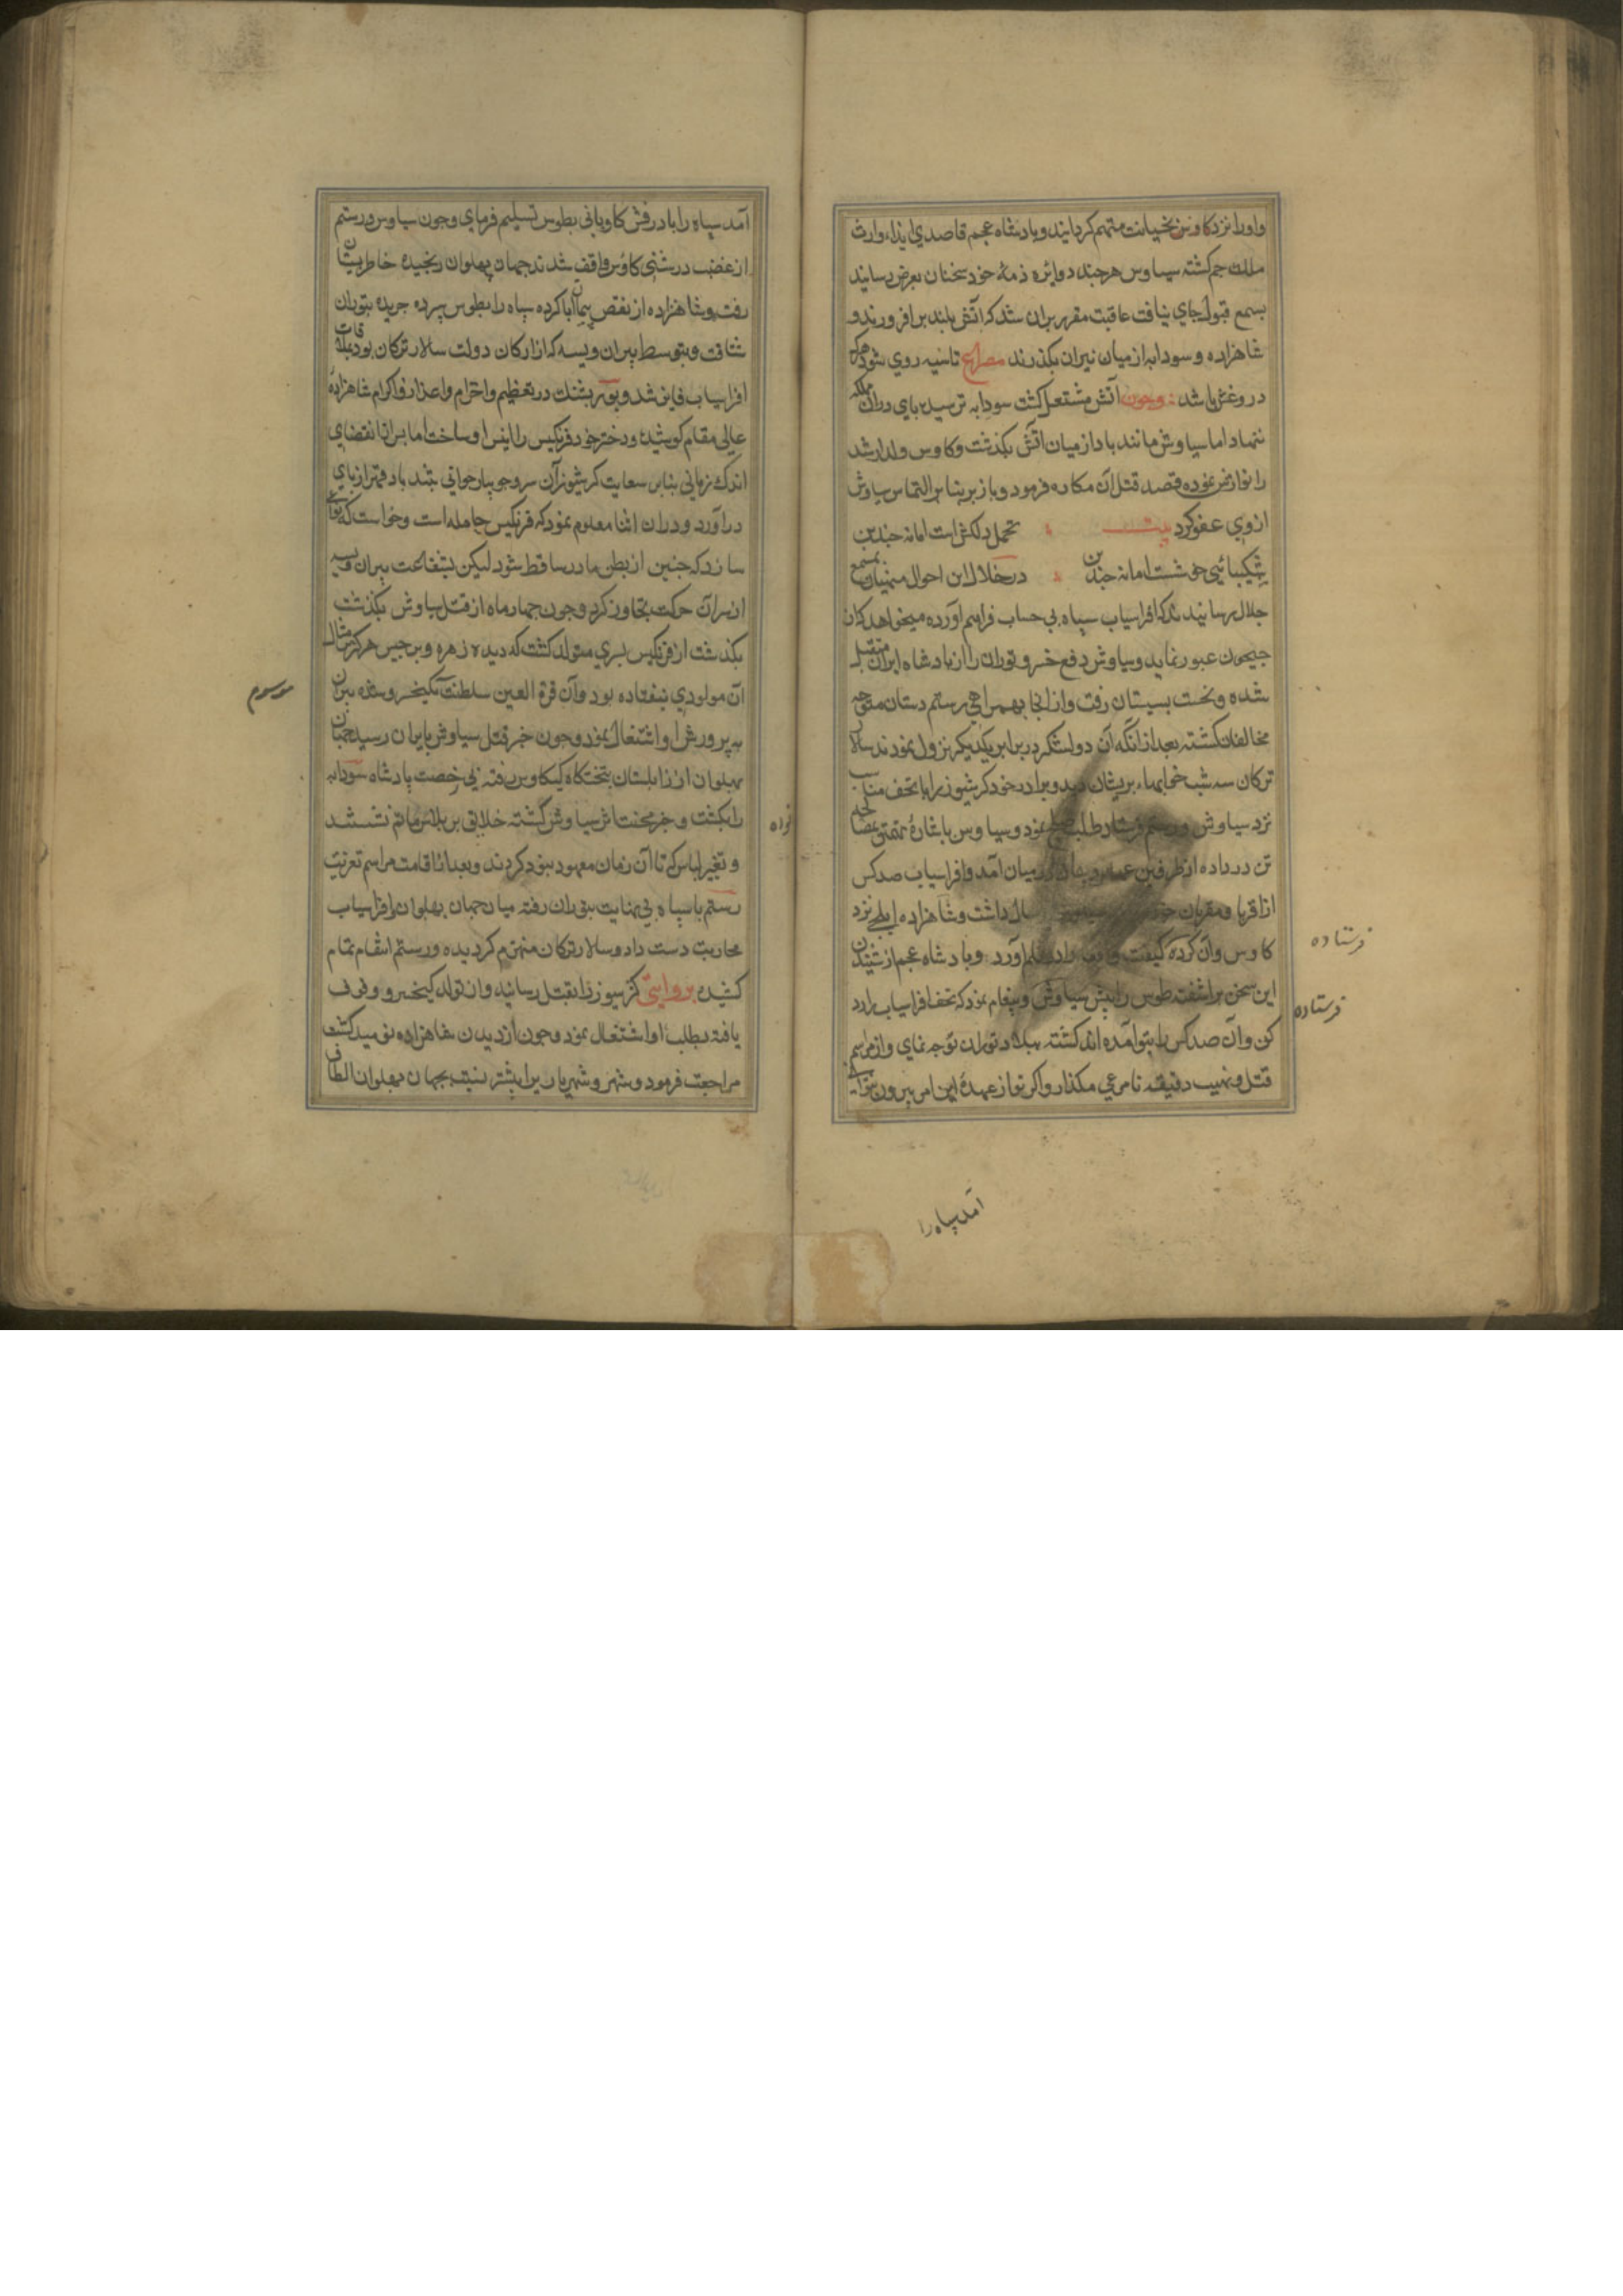 واورا نزد کاوس بخیانت متهم کردانید وبادشاه عجم قاصد ایذاء وارث
ملک جم کشته سیاوس هرچند دوایره ذمهٔ خود سخنان بعرض رسانید
بسمع قبول جای نیافت عاقبت مقرر بران شد که اتش بلند برافروزند و
شاهزاده و سودابه از میان نیران بکذرند مصراع تاسیه روی شود هرکه
دروغش باشد وچون آتش مشتعل کشت سودابه ترسید پای دران مهلکه
ننهاد اما سیاوش مانند باد از میان اتش بکذشت وکاوس ولد ارشد
را نوازش نموده قصد قتل آن مکاره فرمود و باز بنابر التماس سیاوش
ازوی عفو کرد بیت تحمل دلکش است اما نه چندین
شکیبائی خوشست اما نه چندین در خلال این احوال منهیان بمسمع
جلال رسانیدند که افراسیاب سپاه بی حساب فراهم آورده میخواهد کان
جیحون عبور نماید وسیاوش دفع خسرو توران را از بادشاه ایران متقبل
شده ونخست بسیستان رفت وازانجا بهمراهی رستم دستان متوجه
مخالفان کشته بعد ازانکه آن دو لشکر در برابر یکدیکر نزول نمودند سالار
ترکان سه شب خوابهاء بریشان دید وبرادر خود کرشیوز را با تحف مناسب
نزد سیاوش ورستم فرستاد طلب صلح نمود وسیاوس باشارهٔ تهمتن بمصالحه
تن در داده از طرفین عهد و پیمان در میان آمد وافراسیاب صد کس
از اقربا ومقربان خود ارسال داشت وشاهزاده ایلچی نزد
کاوس وان کرده کیفیت واقعه را در قلم آورد وبادشاه عجم از شنیدن
این سخن براشفته طوس را پیش سیاوش وپیغام نمود که تحف افراسیاب را رد
کن وآن صد کس را بتو آمده اند کشته ببلاد توران توجه نمای واز مراسم
قتل ونهیب دقیقه نامرعی مکذار واکر تو از عهدهٔ این امر بیرون نتوانی
فرستاده
فرستاده
آمد سپاه را
آمد سپاه را با درفش کاویانی بطوس تسلیم فرمای وچون سیاوس ورستم
از غضب درشتی کاوس واقف شدند جهان پهلوان رنجیده خاطر بسیستان
رفت وشاهزاده از نقص پیمان ابا کرده سپاه را بطوس سپرده جریده بتوران
شتافت وبتوسط پیران ویسه که از ارکان دولت سالار ترکان بود بملاقات
افراسیاب فایز شد وپور پشنک در تعظیم واحترام واعزاز واکرام شاهزادهٔ
عالی مقام کوشیده ودختر خود فرنکیس را انیس او ساخت اما پس از انقضای
اندک زمانی بنابر سعایت کرشیوز آن سرو جویبار جوانی بتند باد قهر از پای
در آورد ودران اثنا معلوم نمود که فرنکیس حامله است وخواست که نوعی
سازد که جنین از بطن مادر ساقط شود لیکن بشفاعت پیران ویسه
از سر آن حرکت تجاوز کرد وچون چهار ماه از قتل سیاوش بکذشت
بکذشت از فرنکیس پسری متولد کشت که دیده زهره وبرجیس هرکز مثال
آن مولودی نیفتاده بود وآن قرة العین سلطنت بکیخسرو شده پیران
به پرورش او اشتغال نمود وچون خبر قتل سیاوش بایران رسید جهان
پهلوان از زابلستان بتختکاه کیکاوس رفته بی رخصت پادشاه سودابه
را بکشت وخبر محنت اثر سیاوش کشته خلایق بر پلاس ماتم نشستند
وتغییر لباس که تا آن زمان معهود نبود کردند وبعد از اقامت مراسم تعزیت
رستم با سپاه بی نهایت بتوران رفته میان جهان پهلوان وافراسیاب
محاربت دست داد وسالار ترکان منهزم کردیده ورستم انتقام تمام
کشیده بروایتی کرسیوز را بقتل رسانید وان تولد کیخسرو وقوف
یافته بطلب او اشتغال نمود وچون از دیدن شاهزاده نومید کشت
مراجعت فرمود وشهر وشهریار بر ایشتر نسبت بجهان پهلوان الطاف
موسوم